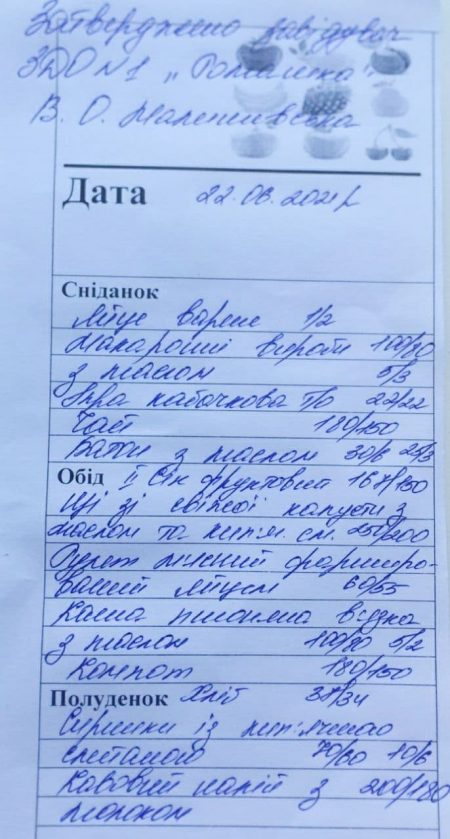 Затверджено завідувач
ЗДО №1 "Ромашка"
В. О.
Дата 22.06.2021р
Сніданок
Яйце варене 1/2
Макаронні вироби 100/80
з маслом 5/3
Ікра кабачкова т/о 22/22
Чай 180/150
Батон з маслом 30/5 25/3
Обід ІІ Сік фруктовий 168/150
Щі зі свіжої капусти з
маслом та кип'яч. см. 250/200
Рулет мясний фарширо-
ваний яйцем 60/55
Каша пшоняна в'язка
з маслом 100/80 5/2
Компот 180/150
Полуденок Хліб 38/34
Сирники із кип'яченою
сметаною 70/60 10/6
Кавовий напій з 200/180
молоком